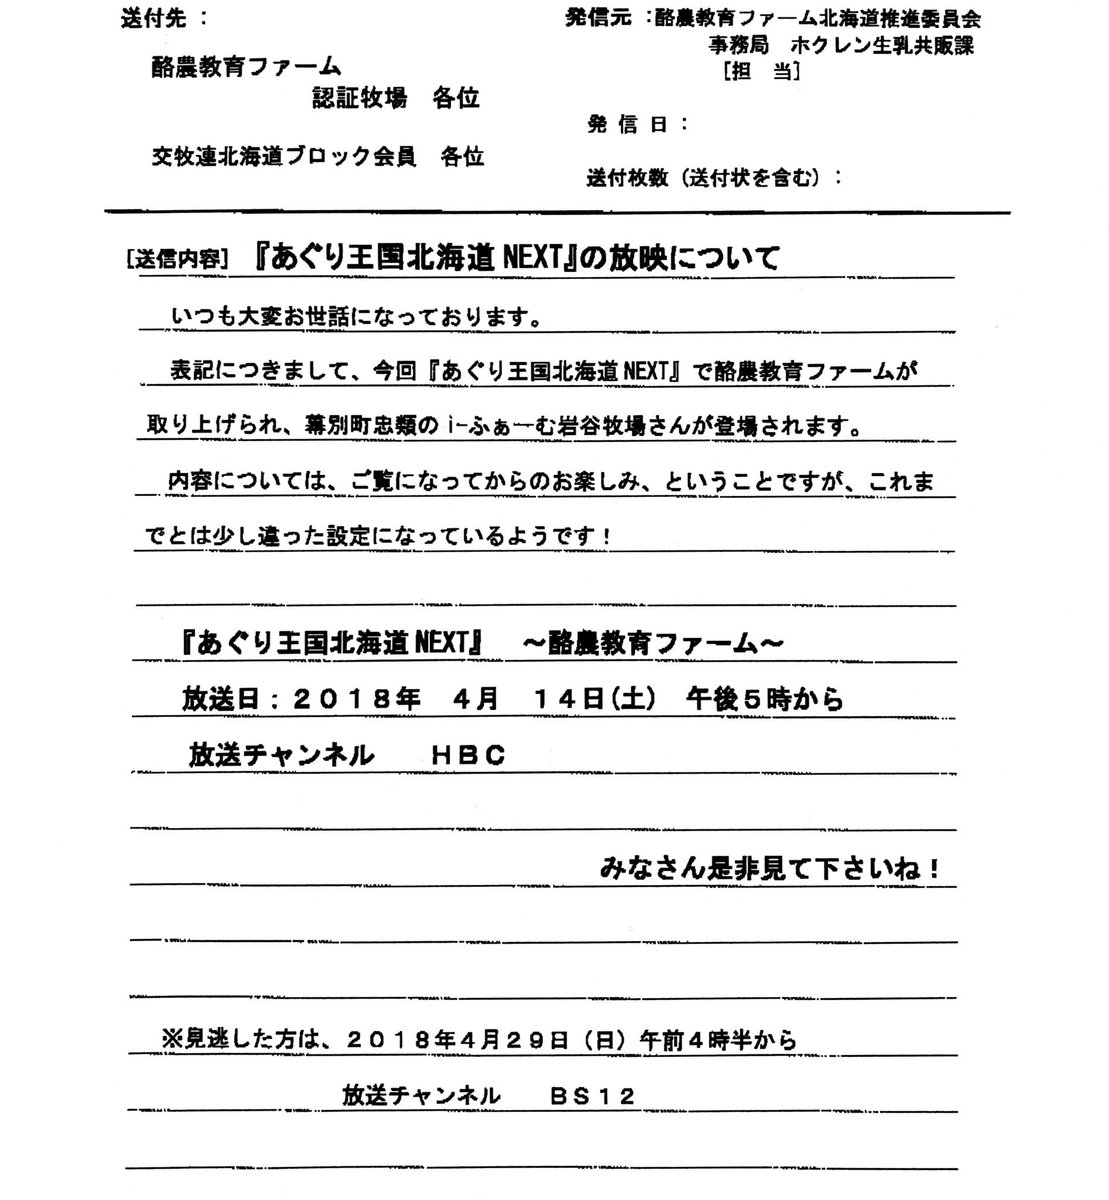 送付先：
酪農教育ファーム
認証牧場　各位
交牧連北海道ブロック会員　各位
発信元：酪農教育ファーム北海道推進委員会
事務局　ホクレン生乳共販課
［担　当］
発信日：
送付枚数（送付状を含む）：
［送信内容］『あぐり王国北海道NEXT』の放映について
いつも大変お世話になっております。
表記につきまして、今回『あぐり王国北海道NEXT』で酪農教育ファームが
取り上げられ、幕別町忠類のi-ふぁーむ岩谷牧場さんが登場されます。
内容については、ご覧になってからのお楽しみ、ということですが、これま
でとは少し違った設定になっているようです！
『あぐり王国北海道NEXT』　～酪農教育ファーム～
放送日：２０１８年　４月　１４日(土)　午後５時から
放送チャンネル　　ＨＢＣ
みなさん是非見て下さいね！
※見逃した方は、２０１８年４月２９日（日）午前４時半から
放送チャンネル　　ＢＳ１２